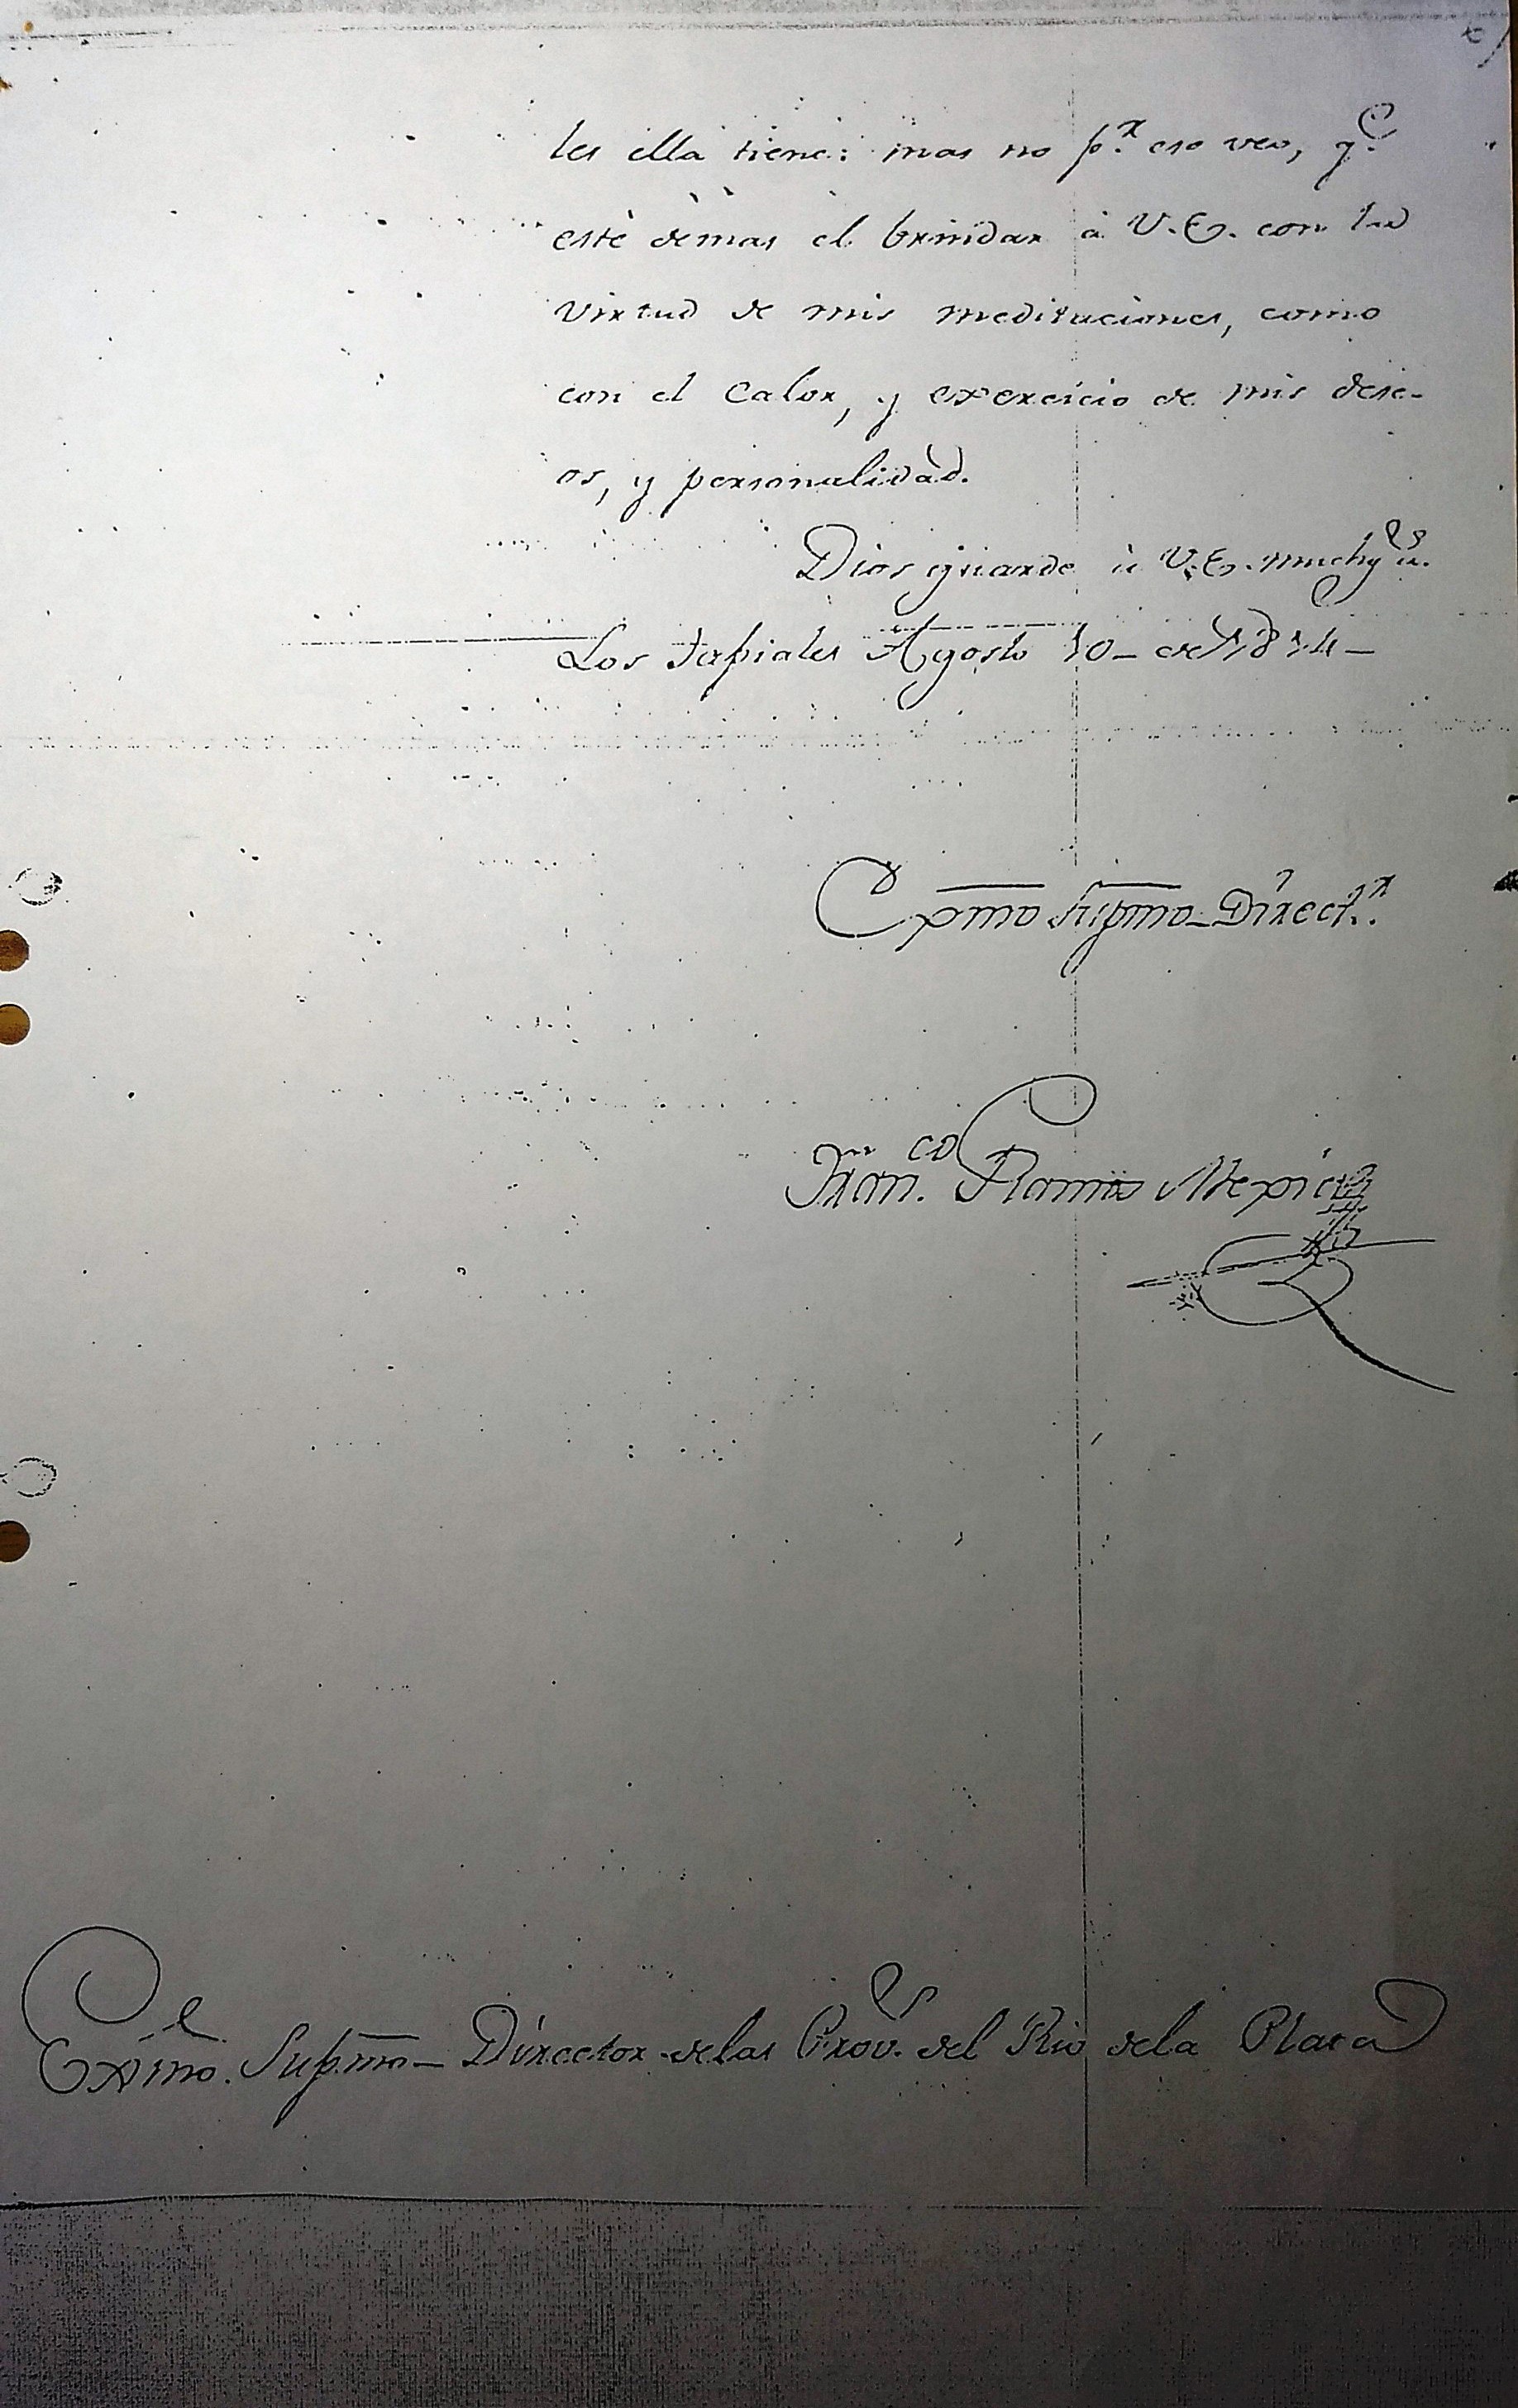 les ella tiene: mas no p.r eso veo, q.e
esté demas el brindar á V.E. con la
virtud de mis meditaciones, como
con el calor, y exercicio de mis dese-
os, y personalidad.
Dios guarde à V.E. much.s a.s
Los Tapiales Agosto 10 - de 1814 -
Exmo Supmo Direct.r
Fran.co Ramos Mexia
Exmo. Supmo Director delas Prov.s del Rio dela Plata